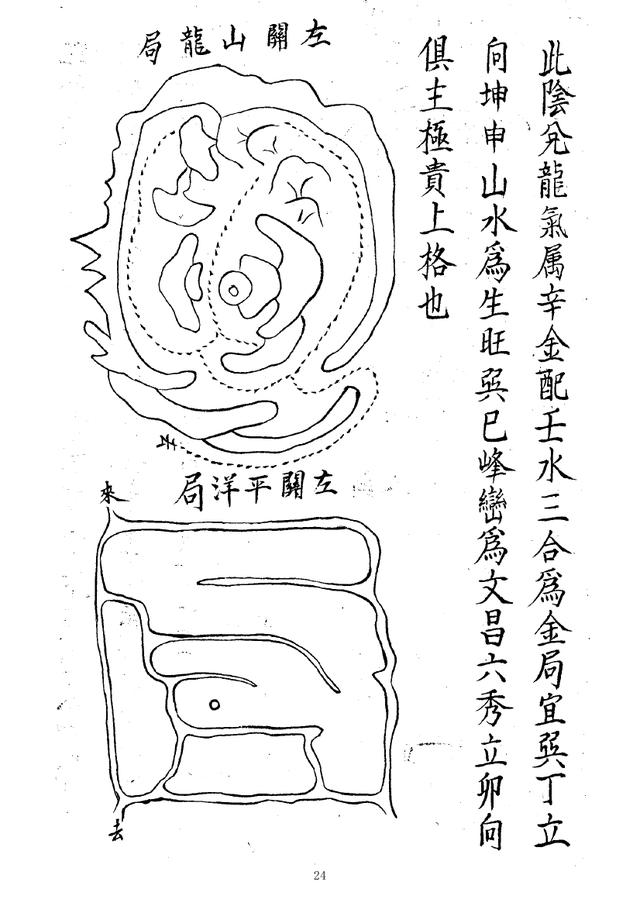 此陰兌龍氣属辛金配壬水三合爲金局宜巽丁立
向坤申山水爲生旺巽巳峰巒爲文昌六秀立卯向
俱主極貴上格也
左關山龍局
左關平洋局
來
去
24